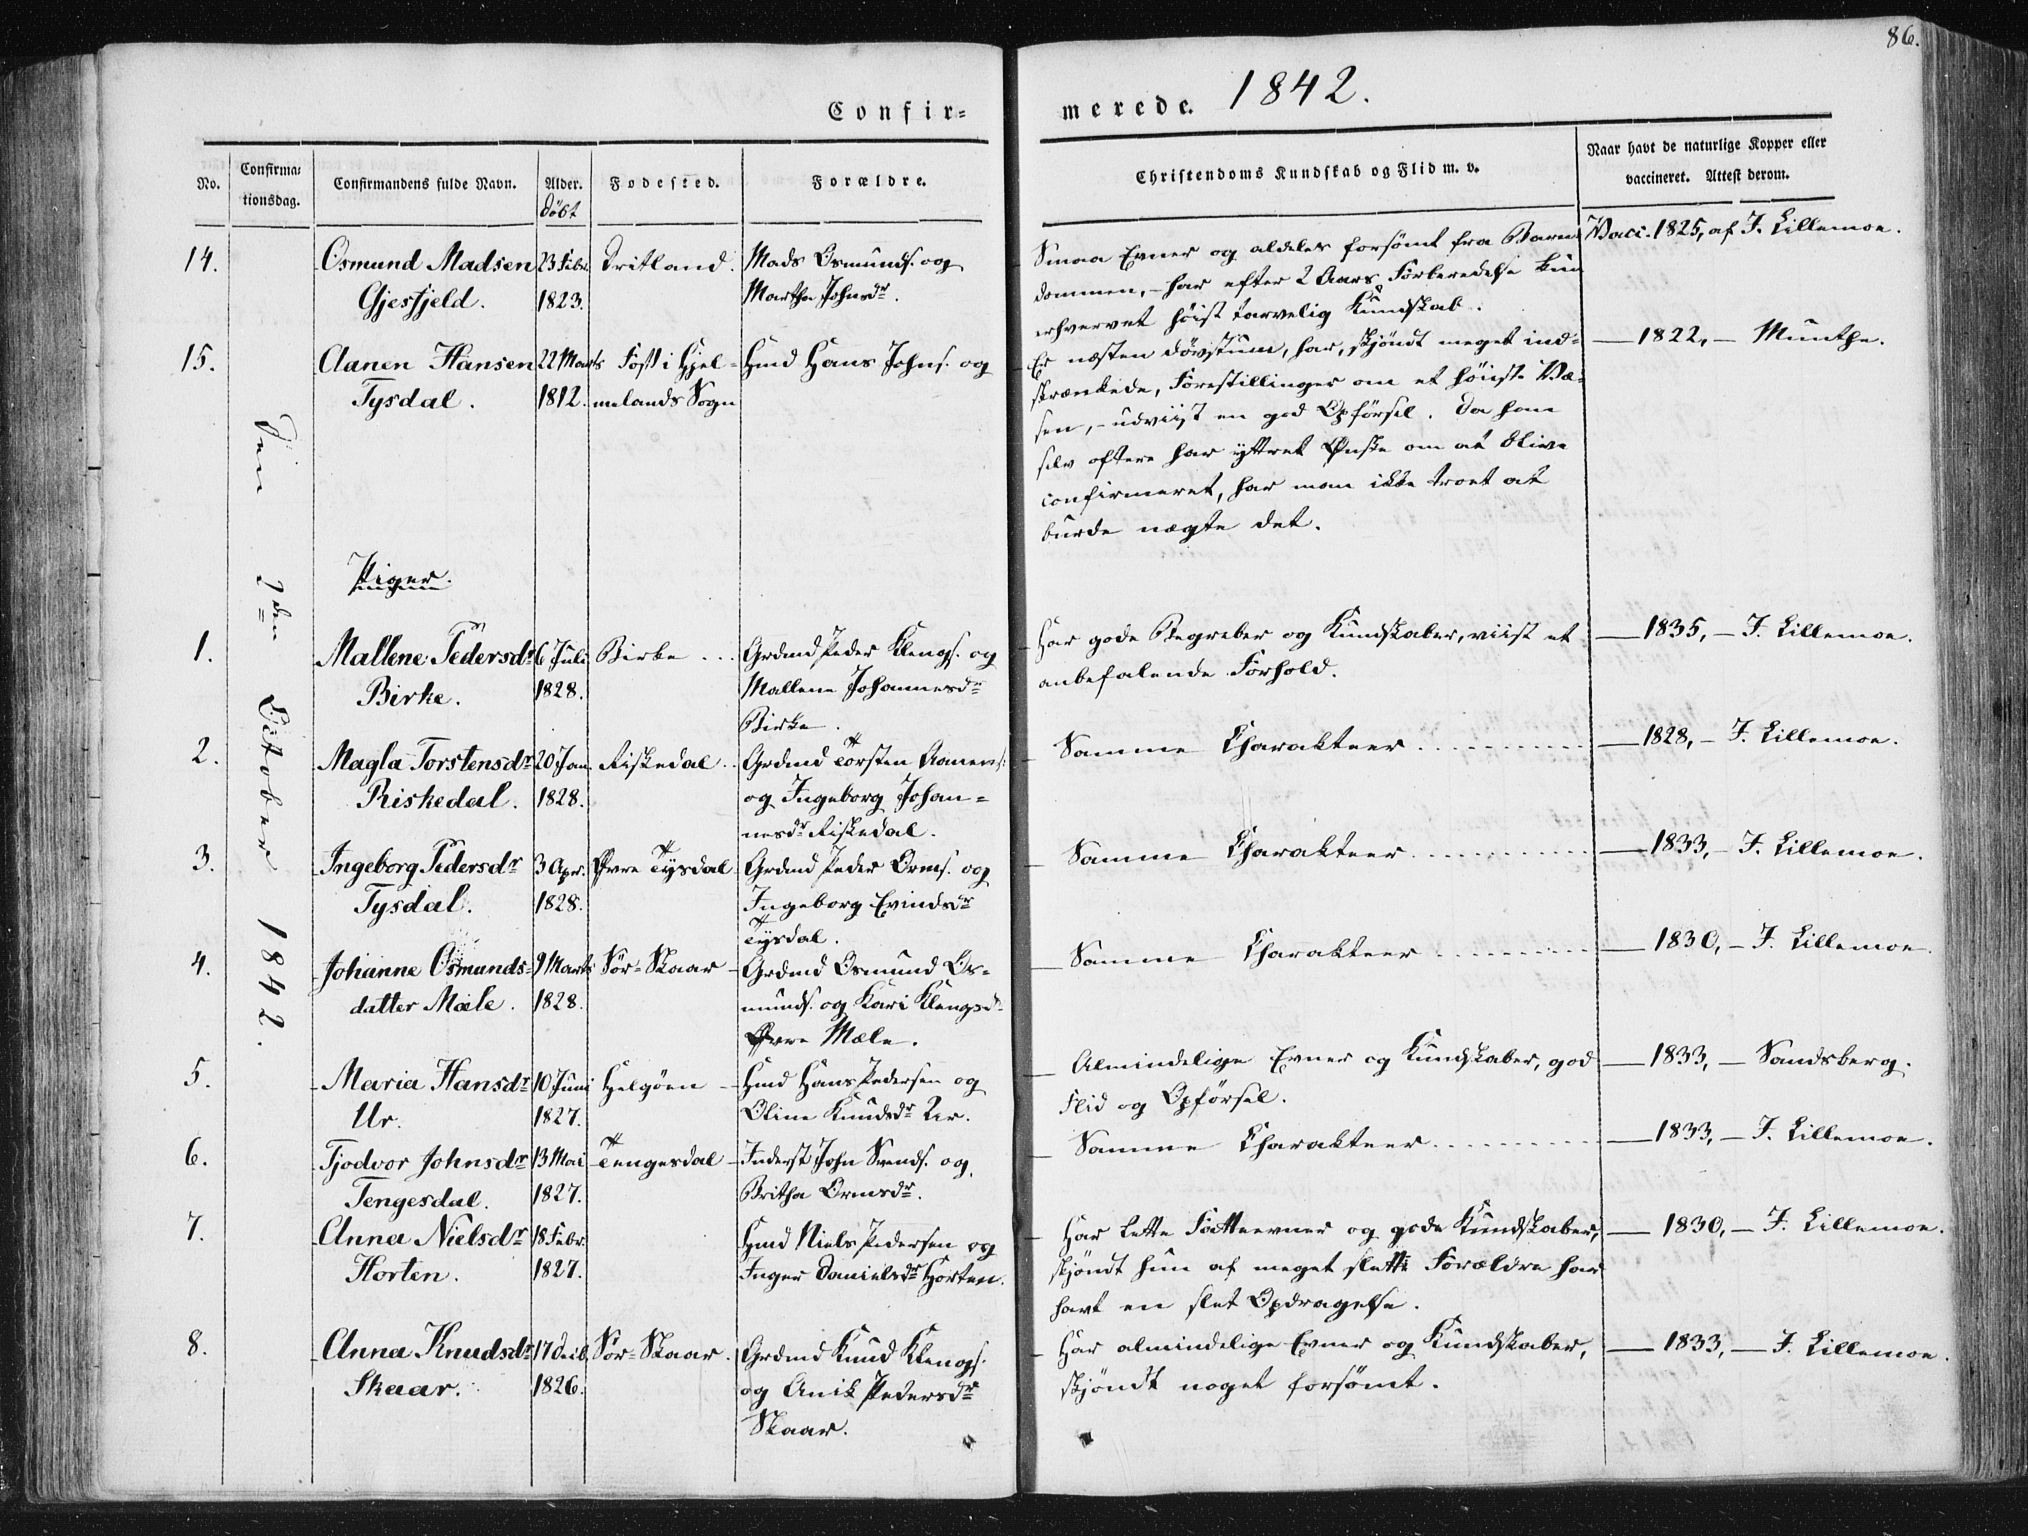 86.
Confir=
merede. 1842.
No.
Confirma=
tionsdag.
Confirmandens fulde Navn.
Alder.
døbt
Fødested.
Forældre.
Christendoms Kundskab og Flid m. v.
Naar havt de naturlige Kopper eller
vaccineret. Attest derom.
Den 2den October 1842.
14.
Osmund Madsen
Gjesfjeld.
23 Febr.
1823.
Tritland.
Mads Osmunds. og
Martha Johnsdr.
Smaa Evner og aldeles forsømt fra Barn
dommen, - har efter 2 Aars Forberedelse kun
erhvervet høist tarvelig Kundskab.
Vacc. 1825, af J. Lillemoe.
15.
Aanen Hansen
Tysdal.
22 Marts
1812.
Fost i Hjel=
melands Sogn
Hmd Hans Johns. og
Er næsten døvstum, har, skjøndt meget ind=
skrænkede, Forestillinger om et høieste Væ=
sen, - udviist en god Opførsel. Da han
selv oftere har yttret Ønske om at blive
confirmeret, har man ikke troet at
burde nægte det.
— 1822, — Munthe.
Piger.
1.
Mallene Pedersdr
Birke.
6 Juli
1828.
Birke ...
Grdmd Peder Klengs. og
Mallene Johannesdr
Birke.
Har gode Begreber og Kundskaber, viist et
anbefalende Forhold.
— 1835, — J. Lillemoe.
2.
Magla Torstensdr
Riskedal.
20 Jan.
1828.
Riskedal..
Grdmd Torsten Aanens.
og Ingeborg Johan=
nesdr Riskedal.
Samme Charakteer
— 1828, — J. Lillemoe.
3.
Ingeborg Pedersdr
Tysdal.
3 Apr.
1828.
Øvre Tysdal
Grdmd Peder Orms. og
Ingeborg Evindsdr
Tysdal.
Samme Charakteer
— 1833, — J. Lillemoe.
4.
Johanne Osmunds=
datter Mæle.
9 Marts
1828.
Sør-Skaar
Grdmd Osmund Os=
munds. og Kari Klengsdr
Øvre Mæle.
Samme Charakteer
— 1830, — J. Lillemoe.
5.
Maria Hansdr
Ur.
10 Juni
1827.
Helgøen
Hmd Hans Pedersen og
Oline Knudsdr Ur.
Almindelige Evner og Kundskaber, god
Flid og Opførsel.
— 1833, — Sandsberg.
6.
Tjodvor Johnsdr
Tengesdal.
13 Mai
1827.
Tengesdal
Inderst John Svends. og
Britha Ormsdr.
Samme Charakteer
— 1833, — J. Lillemoe.
7.
Anna Nielsdr
Horten.
18 Febr.
1827.
Hmd Niels Pedersen og
Inger Danielsdr Horten.
Har lette Fatteevner og gode Kundskaber,
skjøndt hun af meget slette Forældre har
havt en slet Opdragelse.
— 1830, — J. Lillemoe.
8.
Anna Knudsdr
Skaar.
17 Decb.
1826.
Sør-Skaar.
Grdmd Knud Klengs.
og Anik Pedersdr
Skaar.
Har almindelige Evner og Kundskaber,
skjøndt noget forsømt.
— 1833, — J. Lillemoe.